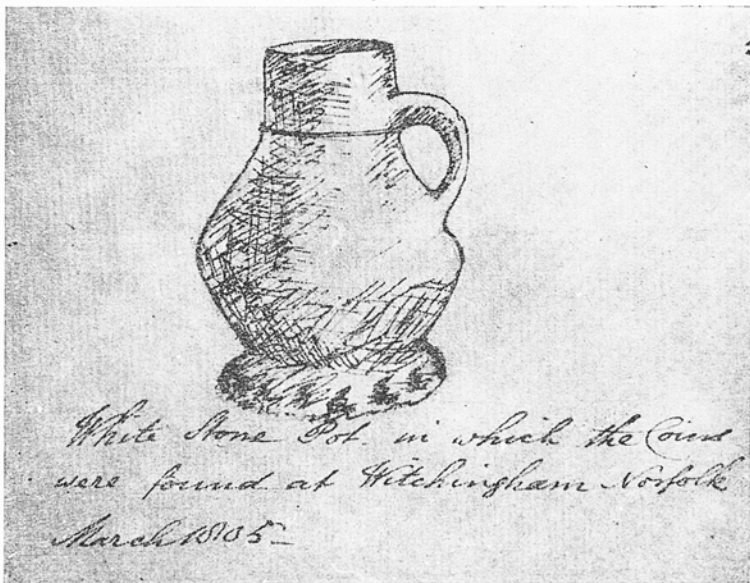 White Stone Pot in which the Coins
were found at Witchingham Norfolk
March 1805